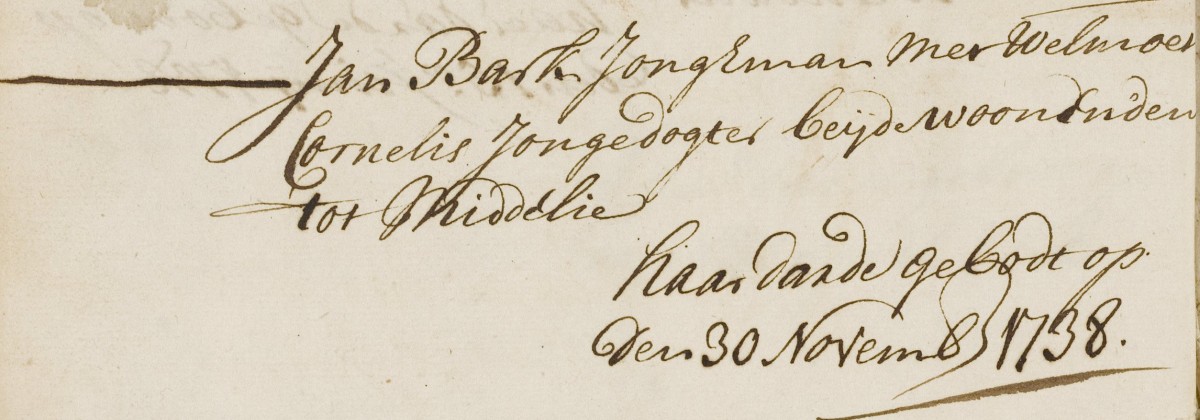 Jan Bark Jongman met Welmoet
Cornelis Jongedogter beijde woonenden
tot Middelie
haar darde gebodt op
den 30 Novemb 1738.